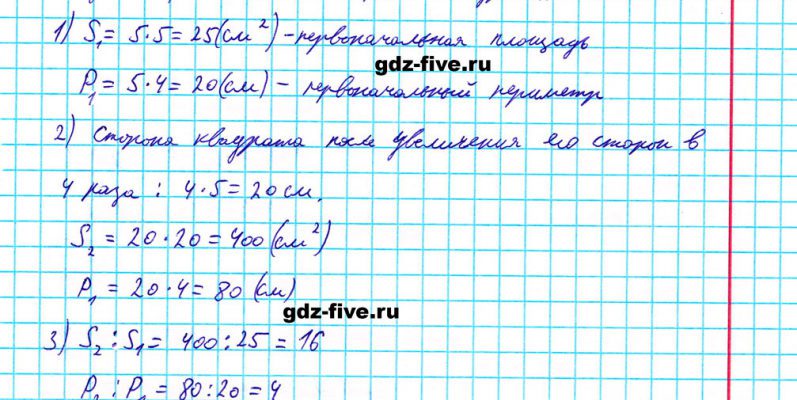 1) S₁ = 5·5 = 25 (см²) – первоначальная площадь
gdz-five.ru
P₁ = 5·4 = 20 (см) – первоначальный периметр
2) Сторона квадрата после увеличения его сторон в
4 раза : 4·5 = 20 см.
S₂ = 20·20 = 400 (см²)
P₁ = 20·4 = 80 (см)
gdz-five.ru
3) S₂ : S₁ = 400 : 25 = 16
P₂ : P₁ = 80 : 20 = 4